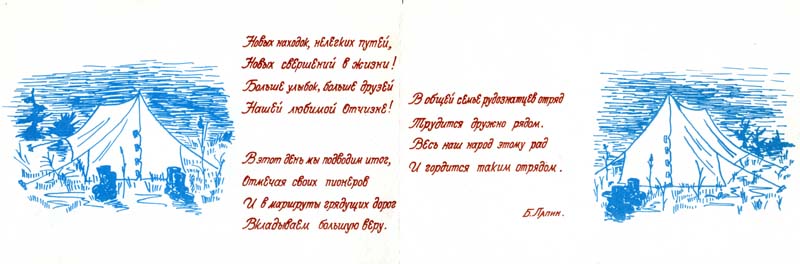 Новых находок, нелегких путей,
Новых свершений в жизни!
Больше улыбок, больше друзей
Нашей любимой Отчизне!
В этот день мы подводим итог,
Отмечая своих пионеров
И в маршруты грядущих дорог
Вкладываем большую веру.
В общей семье рудознатцев отряд
Трудится дружно рядом.
Весь наш народ этому рад
И гордится таким отрядом.
Б. Лапин.